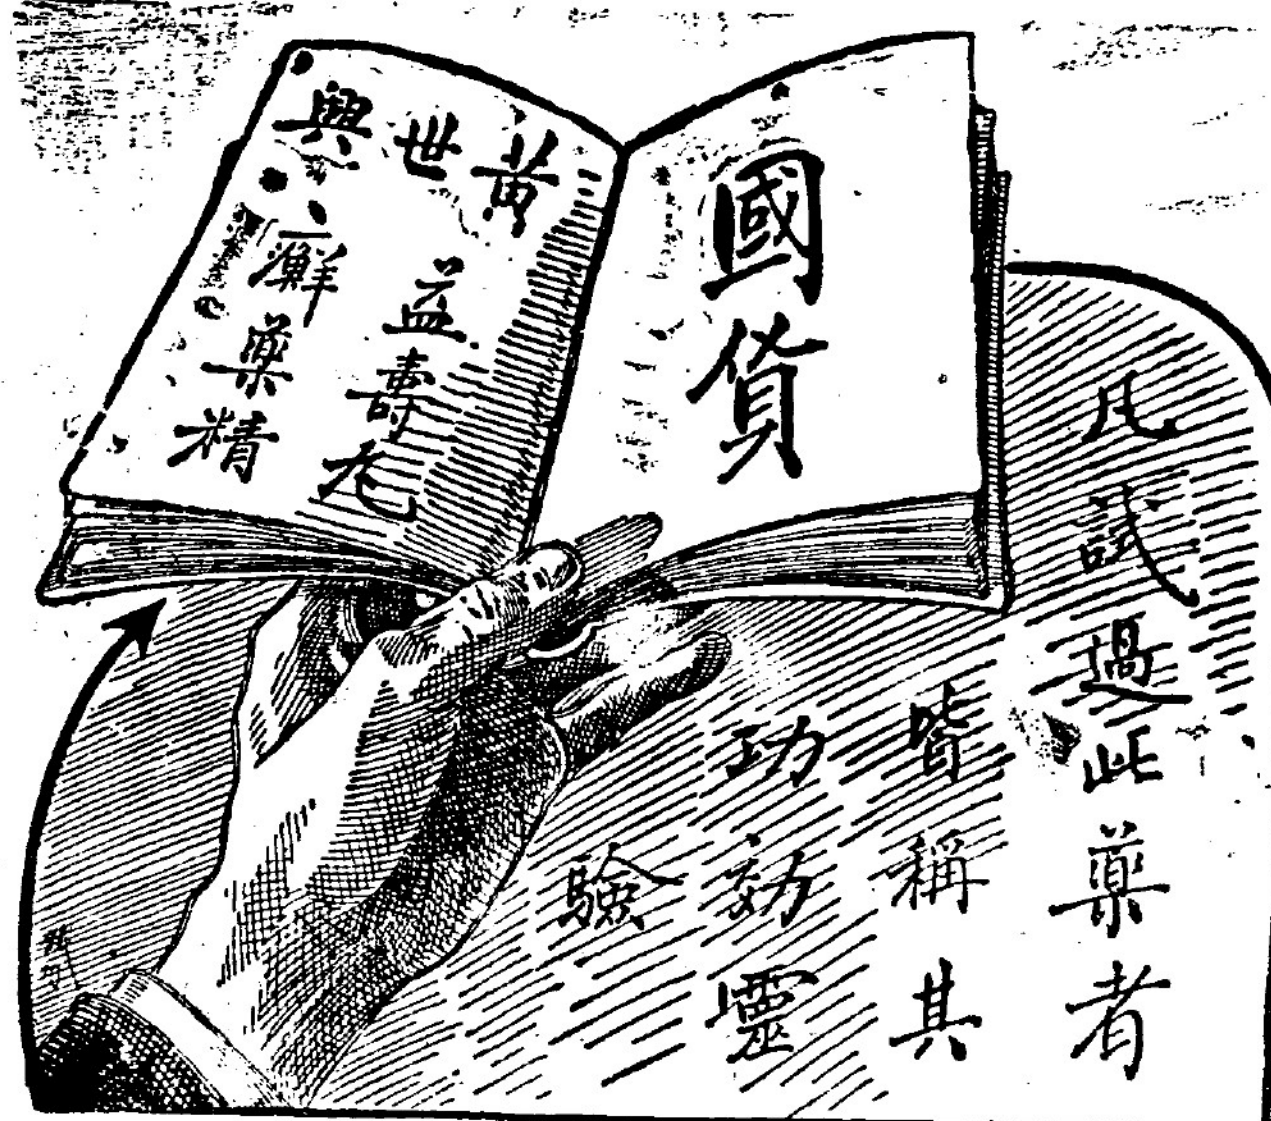 國貨
黄世興
益壽丸
癬藥精
凡試過此藥者
皆稱其
功効靈
驗